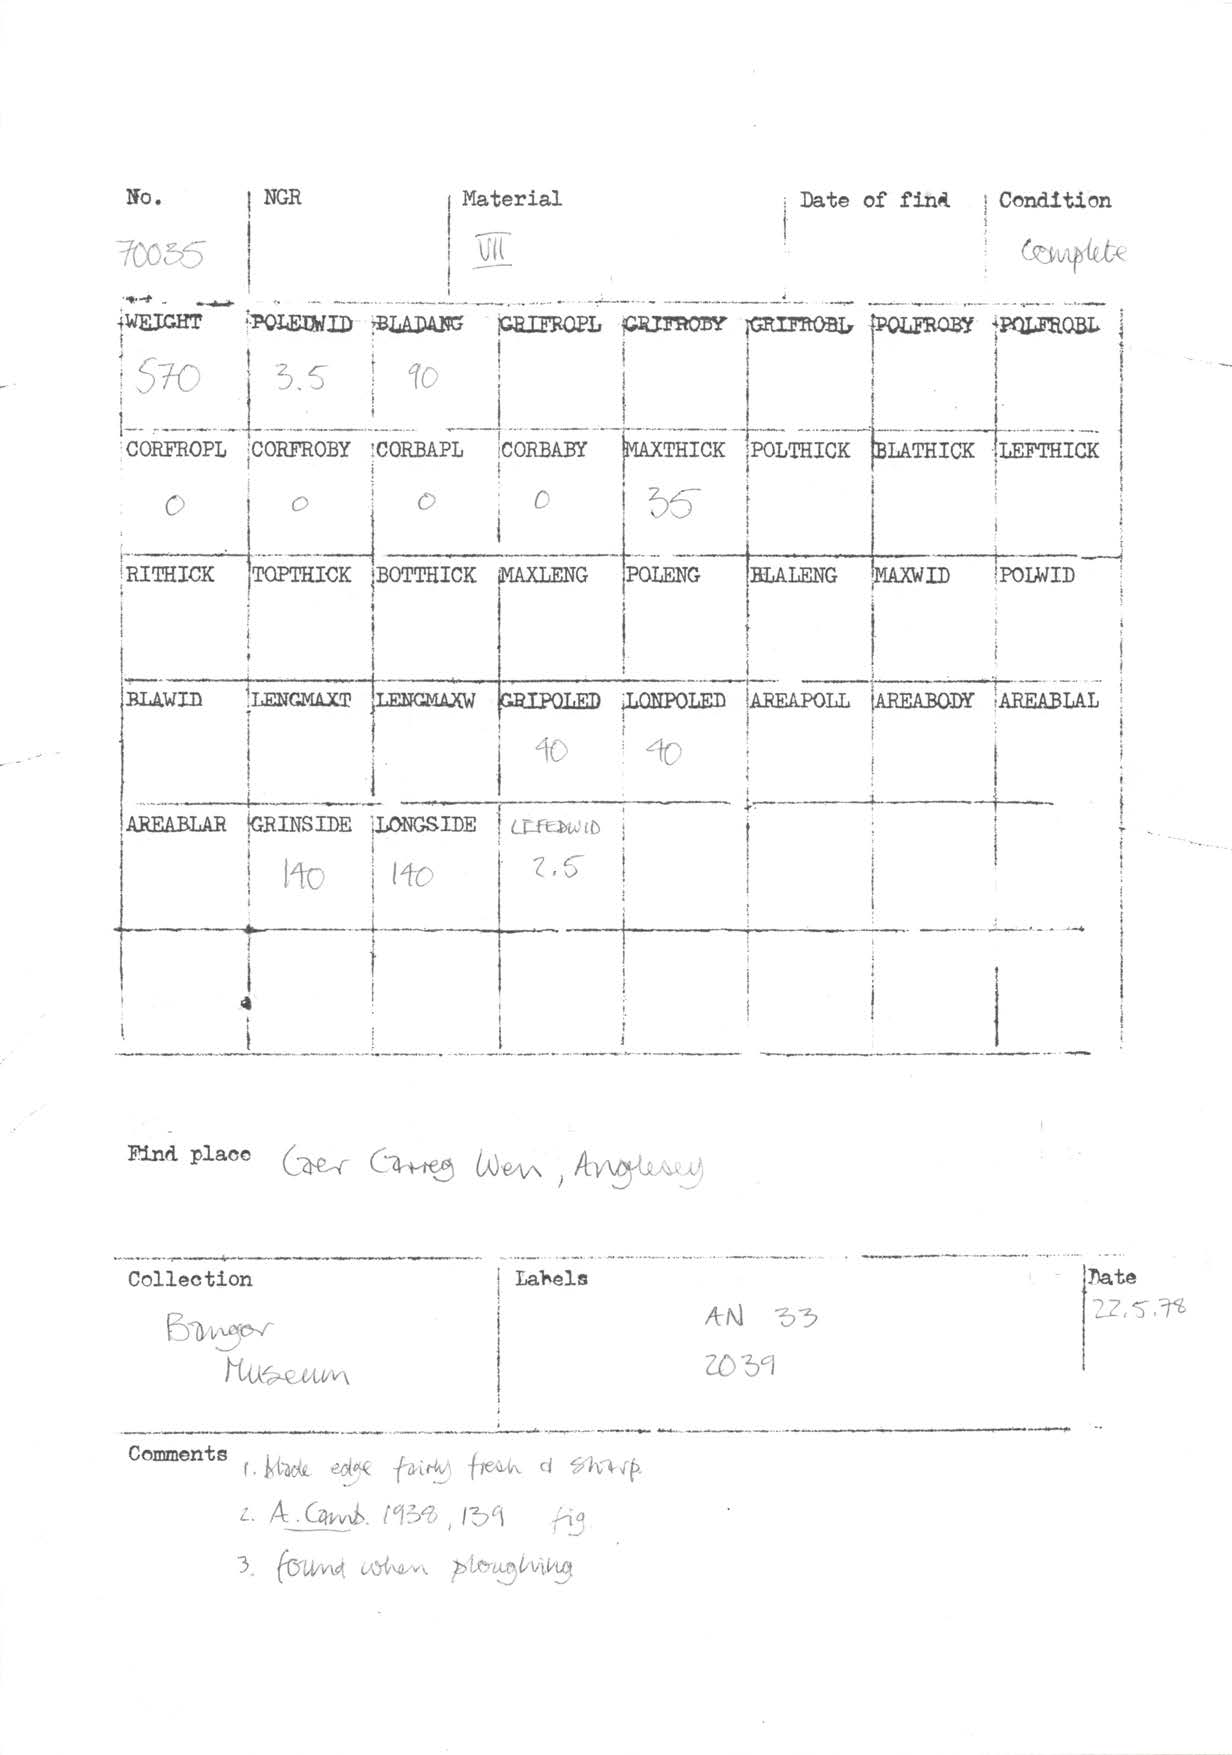 No. NGR Material Date of find Condition
70035 VII Complete
WEIGHT POLEDWID BLADANG GRIFROPL GRIFROBY GRIFROBL POLFROBY POLFROBL
570 3.5 90
CORFROPL CORFROBY CORBAPL CORBABY MAXTHICK POLTHICK BLATHICK LEFTHICK
0 0 0 0 35
RITHICK TOPTHICK BOTTHICK MAXLENG POLENG BLALENG MAXWID POLWID
BLAWID LENGMAXT LENGMAXW GRIPOLED LONPOLED AREAPOLL AREABODY AREABLAL
40 40
AREABLAR GRINSIDE LONGSIDE LEFEDWID
140 140 2.5
Find place Caer Carreg Wen, Anglesey
Collection Labels Date
Bangor AN 33 22.5.78
Museum 2039
Comments 1. blade edge fairly fresh & sharp.
2. A. Camb. 1938, 139 fig.
3. found when ploughing